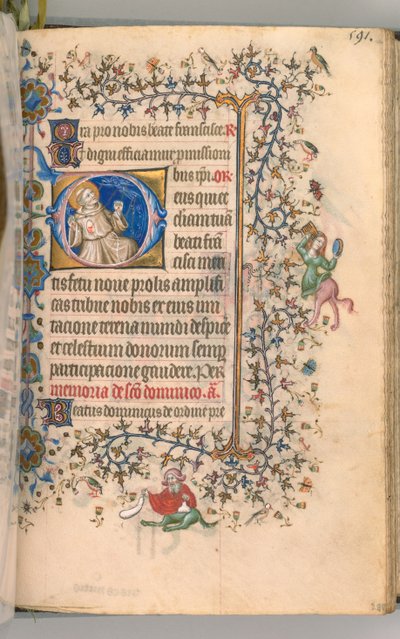 591.
Ora pro nobis beate francisce. R
Et digni efficiamur p̄missioni
bus xp̄i. OR
Deus qui ec
cliam tuā
beati frā
cisci meri
tis fetu nove prolis amplifi
cas tribue nobis ex eius imi
tacione terena mundi despice
et celestium donorum semp
participacione gaudere. Per
memoria de sc̄o dominico. ā.
Beatus dominicus de ordine pre